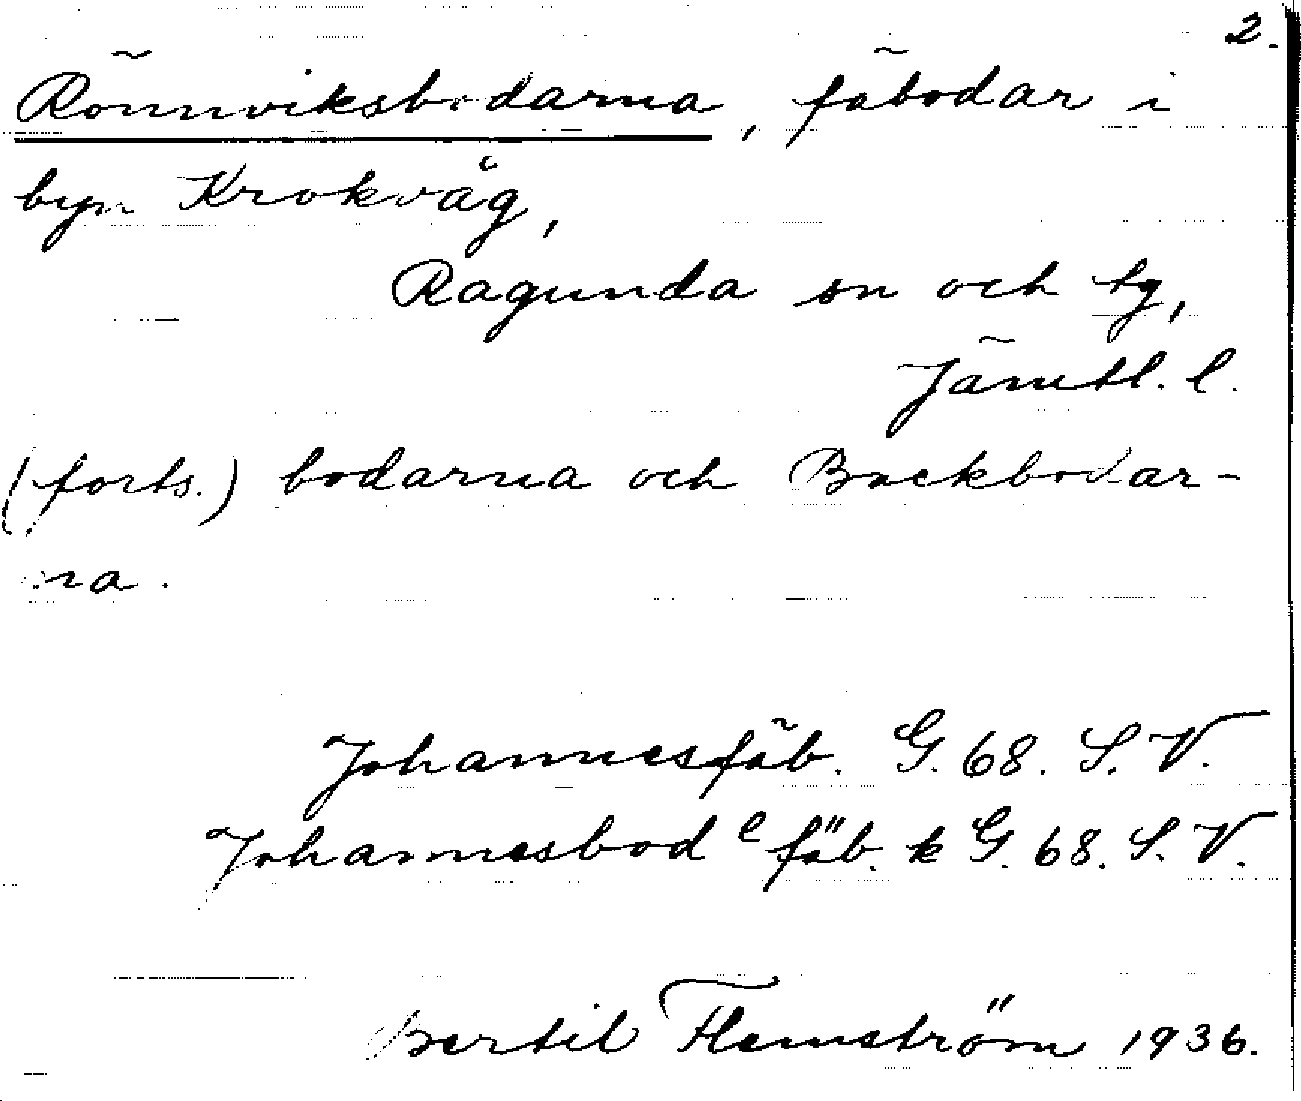 2.
Rönnviksbodarna, fäbodar i
byn Krokvåg,
Ragunda sn och tg,
Jämtl. l.
(forts.) bodarna och Backbodar-
na.
Johannesfäb. G. 68. S. V.
Johannesbod e fäb. k G. 68. S. V.
Bertil Flemström 1936.